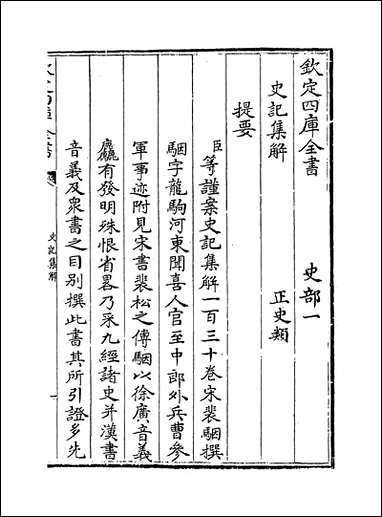 欽定四庫全書　　史部一
史記集解　　正史類
提要
臣等謹案史記集解一百三十卷宋裴駰撰
駰字龍駒河東聞喜人官至中郎外兵曹參
軍事迹附見宋書裴松之傳駰以徐廣音義
麤有發明殊恨省畧乃采九經諸史并漢書
音義及衆書之目别撰此書其所引證多先
史記集解